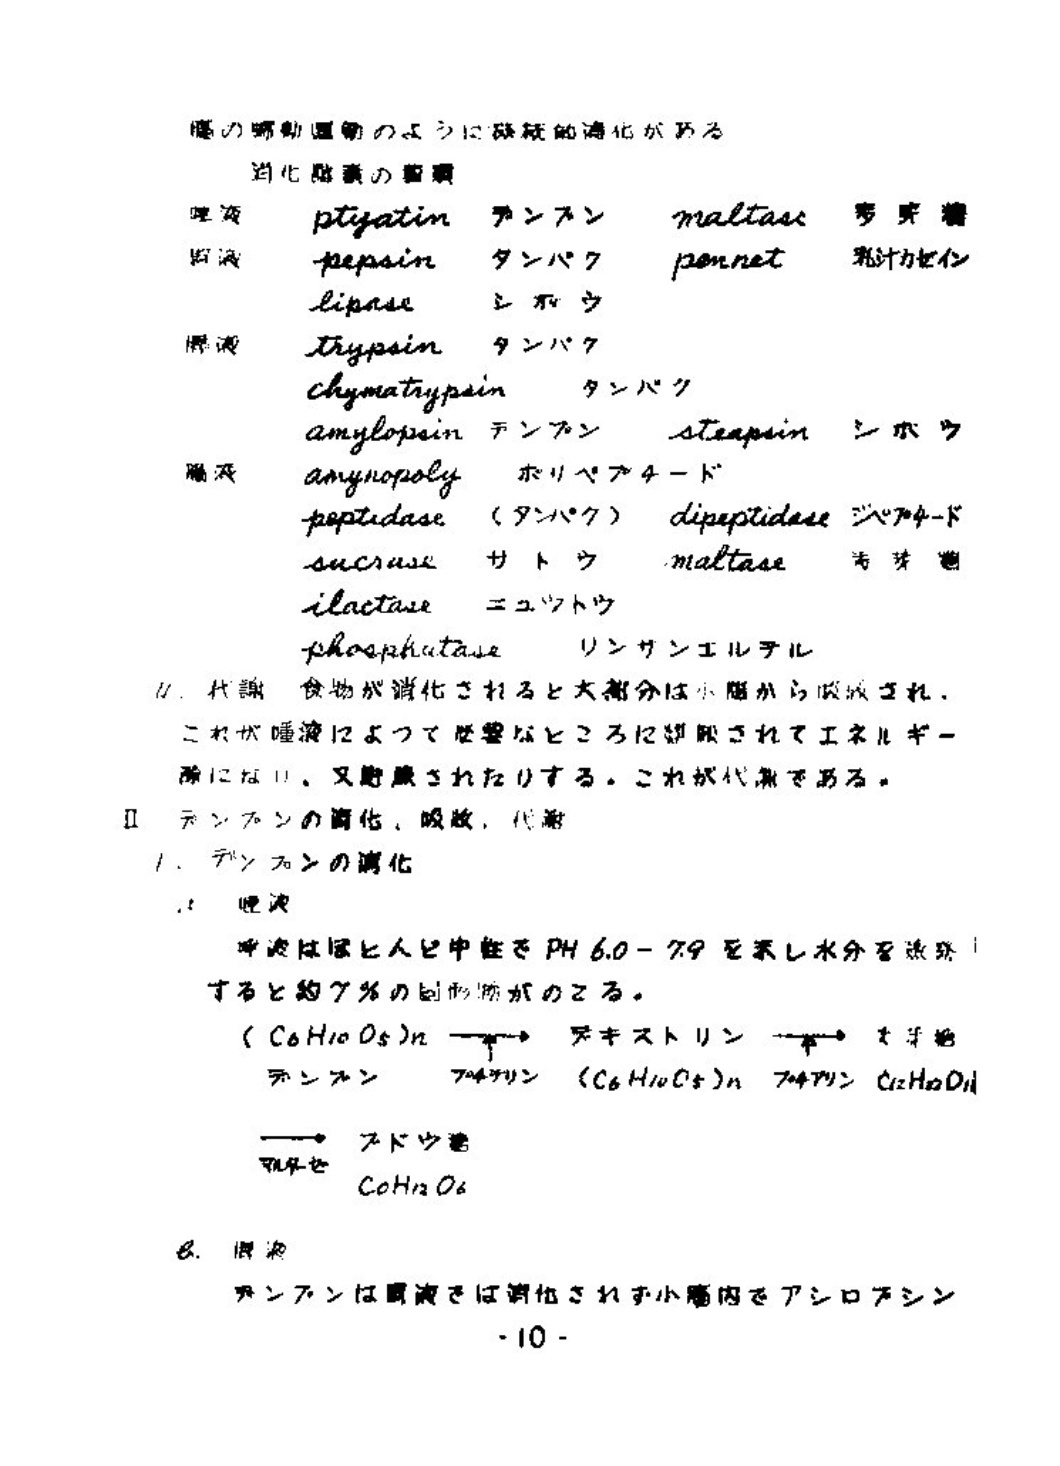 腸の蠕動運動のように機械的消化がある
消化酵素の種類
唾液 ptyatin デンプン maltase 麦芽糖
胃液 pepsin タンパク pennet 乳汁カゼイン
lipase シボウ
膵液 trypsin タンパク
chymatrypsin タンパク
amylopsin デンプン steapsin シボウ
腸液 amynopoly ポリペプチード
peptidase (タンパク) dipeptidase ジペプチード
sucrase サトウ maltase 麦芽糖
ilactase ニュウトウ
phosphatase リンサンエルテル
代謝 食物が消化されると大部分は小腸から吸収され、
これが によつて必要なところに運搬されてエネルギー
源になり、又貯蔵されたりする。これが代謝である。
II デンプンの消化、吸収、代謝
1. デンプンの消化
唾液
唾液はほとんど中性で PH 6.0-7.9 を示し水分を蒸発
すると約7%の固形物がのこる。
(C6H10O5)n → デキストリン → 麦芽糖
デンプン プチアリン (C6H10O5)n プチアリン C12H22O11
→ ブドウ糖
マルターゼ
C6H12O6
b. 胃液
デンプンは胃液では消化されず小腸内でアミロプシン
-10-